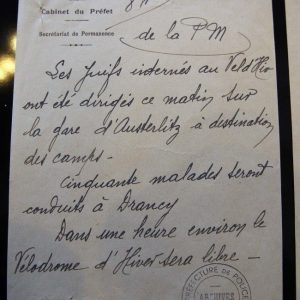 Cabinet du Préfet
Secrétariat de Permanence
de la P M
Les Juifs internés au Vel d'Hiv
ont été dirigés ce matin sur
la gare d'Austerlitz à destination
des camps -
Cinquante malades seront
conduits à Drancy
Dans une heure environ le
Vélodrome d'Hiver sera libre -
PRÉFECTURE DE POLICE
ARCHIVES